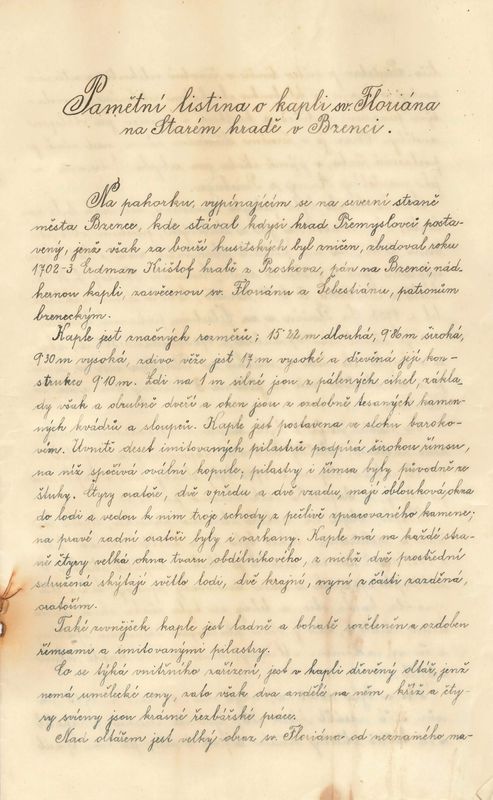 Pamětní listina o kapli sv. Floriána
na Starém hradě v Bzenci.
Na pahorku, vypínajícím se na severní straně
města Bzence, kde stával kdysi hrad Přemyslovců posta-
vený, jenž však za bouří husitských byl zničen, zbudoval roku
1702-3 Erdman Krištof hrabě z Proskova, pán na Bzenci, nád-
hernou kapli, zasvěcenou sv. Floriánu a Sebestiánu, patronům
bzeneckým.
Kaple jest značných rozměrů; 15˙22 m dlouhá, 9˙86 m široká,
9˙30 m vysoká, zdivo věže jest 17 m vysoké a dřevěná její kon-
strukce 9˙10 m. Zdi na 1 m silné jsou z pálených cihel, zákla-
dy však a obrubně dveří a oken jsou z ozdobně tesaných kamen-
ných kvádrů a sloupců. Kaple jest postavena ve slohu baroko-
vém. Uvnitř deset imitovaných pilastrů podpírá širokou římsu,
na níž spočívá ovální kopule; pilastry i římsa byly původně ze
štuky. Čtyry oratoře, dvě vpředu a dvě vzadu, mají oblouková okna
do lodi a vedou k nim troje schody z pečlivě zpracovaného kamene;
na pravé zadní oratoři byly i varhany. Kaple má na každé stra-
ně čtyry velká okna tvaru obdélníkového, z nichž dvě prostřední
sdružená skýtají světlo lodi, dvě krajní, nyní z části zazděná,
oratořím.
Také zevnějšek kaple jest ladně a bohatě rozčleněn a ozdoben
římsami a imitovanými pilastry.
Co se týká vnitřního zařízení, jest v kapli dřevěný oltář, jenž
nemá umělecké ceny, zato však dva andělé na něm, kříž a čty-
ry svícny jsou krásné řezbářské práce.
Nad oltářem jest velký obraz sv. Floriána od neznámého ma-